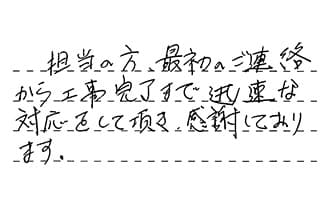 担当の方、最初のご連絡
から工事完了まで迅速な
対応をして頂き、感謝しており
ます。